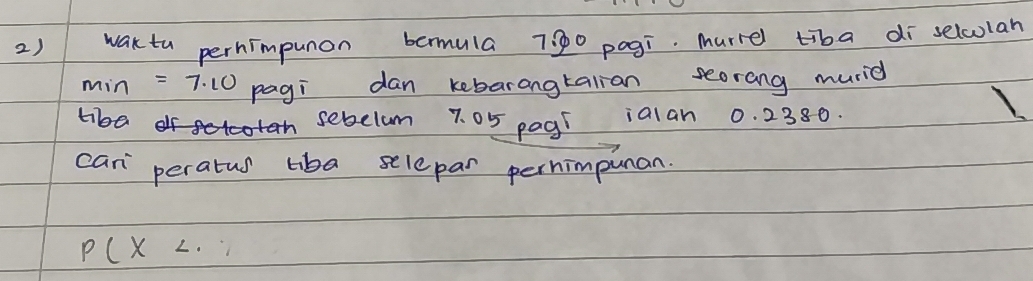 2) Waktu perhimpunan bermula 7.20 pagi. Murid tiba di sekolah
min = 7.10 pagi dan kebarangkalian seorang murid
tiba di sekolah sebelum 7.05 pagi ialah 0.2380.
Cari peratus tiba selepas perhimpunan.
P(X <